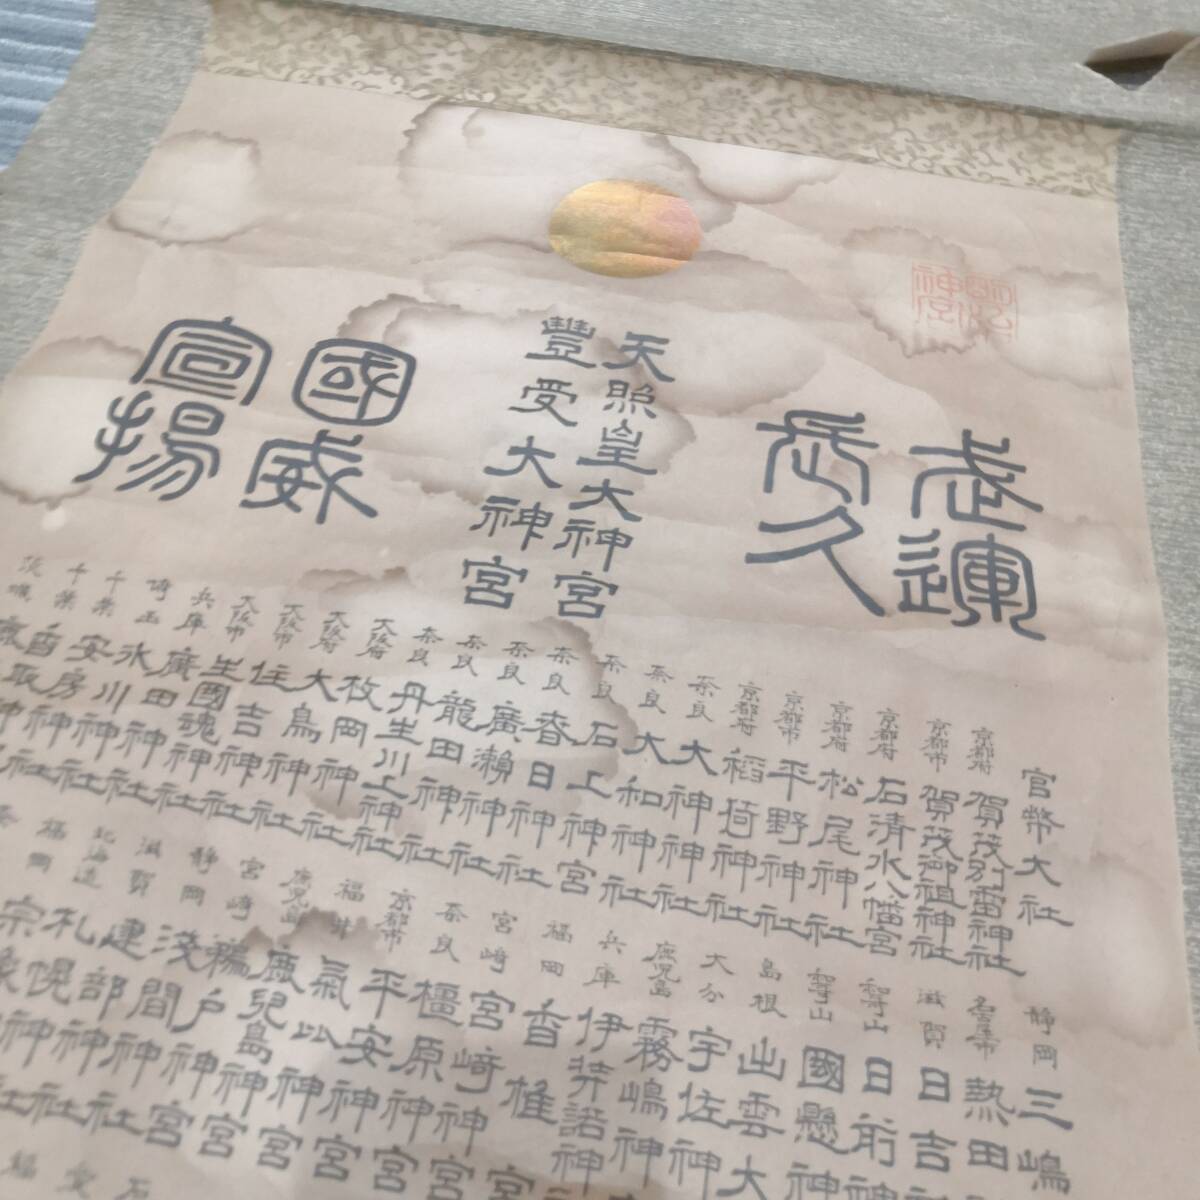 武運
長久
天照皇大神宮
豐受大神宮
國威
宣揚
官幣大社
京都府 賀茂別雷神社
京都市 賀茂御祖神社
京都府 石清水八幡宮
京都府 松尾神社
京都市 平野神社
京都府 稻荷神社
奈良 大神神社
奈良 大和神社
奈良 石上神宮
奈良 春日神社
奈良 廣瀨神社
奈良 龍田神社
奈良 丹生川上神社
大阪府 枚岡神社
大阪府 大鳥神社
大阪市 住吉神社
大阪市 生國魂神社
兵庫 廣田神社
埼玉 氷川神社
千葉 安房神社
千葉 香取神
茨城
靜岡 三嶋
名古屋市 熱田
滋賀 日吉
和歌山 日前神
和歌山 國懸神
島根 出雲大
大分 宇佐神
鹿児島 霧嶋神
兵庫 伊弉諾神
福岡 香椎宮
宮崎 宮崎神宮
奈良 橿原神宮
京都市 平安神宮
福井 氣比神宮
鹿児島 鹿兒島神宮
宮崎 鵜戸神宮
靜岡 淺間神社
滋賀 建部神社
北海道 札幌神社
福岡 宗像神社